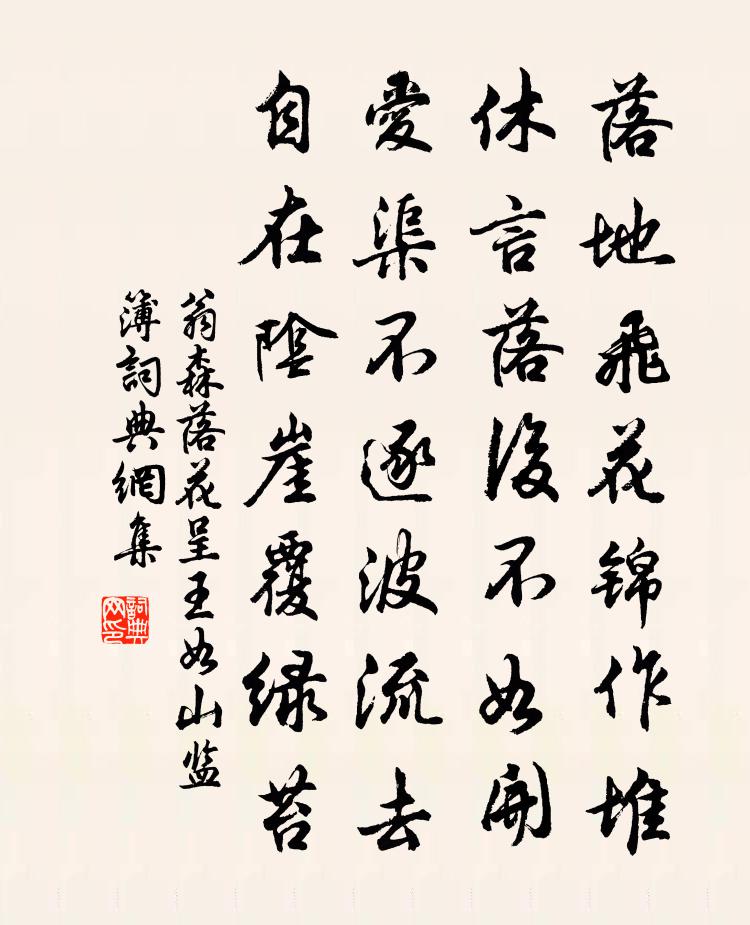 落地飛花锦作堆
休言落後不如開
愛渠不逐波流去
自在陰崖覆绿苔
翁森落花呈王如山监
簿詞典網集
詞典
网印